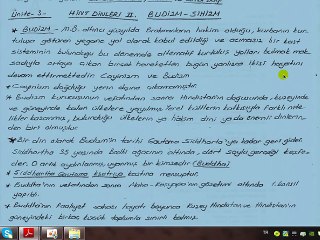 Ünite-3- HİNT DİNLERİ II. BUDİZM-SİHİZM
* BUDİZM - M.Ö. altıncı yüzyılda Brahmanların hakim olduğu, kurbanın kur-
tuluşa götüren yegane yol olarak kabul edildiği ve acımasız bir kast
sisteminin bulunduğu bu dönemde alternatif kurtuluş yolları bulmak mak-
sadıyla ortaya çıkan birçok hareketten bugün yanlızca ikisi hayatını
devam ettirmektedir. Caynizm ve Budizm
* Caynizm doğduğu yerin dışına çıkamamıştır.
* Budizm kurucusunun vefatından sonra Hindistanın doğusunda- kuzeyinde
ve güneyinde kalan ülkelere yayılmış. Yerel kültlerin katkısıyla farklı nite-
likler kazanmış, bulunduğu ülkelerin ya hakim dini yada önemli dinlerin-
den biri olmuştur.
* Bir din olarak Budizm'in tarihi Gautama Siddharta'ya kadar geri gider.
Siddhartha 35 yaşında Bodhi ağacının altında, dört soylu gerçeği keşfe-
der. O artık aydınlanmış, uyanmış bir kimsedir. (Buddha)
* Siddhartha Gautama Kşatriya kastına mensuptur.
* Buddha'nın vefatından sonra Maha-Kasyapa'nın gözetimi altında 1. konsil
yapıldı.
* Buddha'nın faaliyet sahası hayatı boyunca Kuzey Hindistan ve Hindistanın
güneyindeki birkaç küçük toplumla sınırlı kalmış.